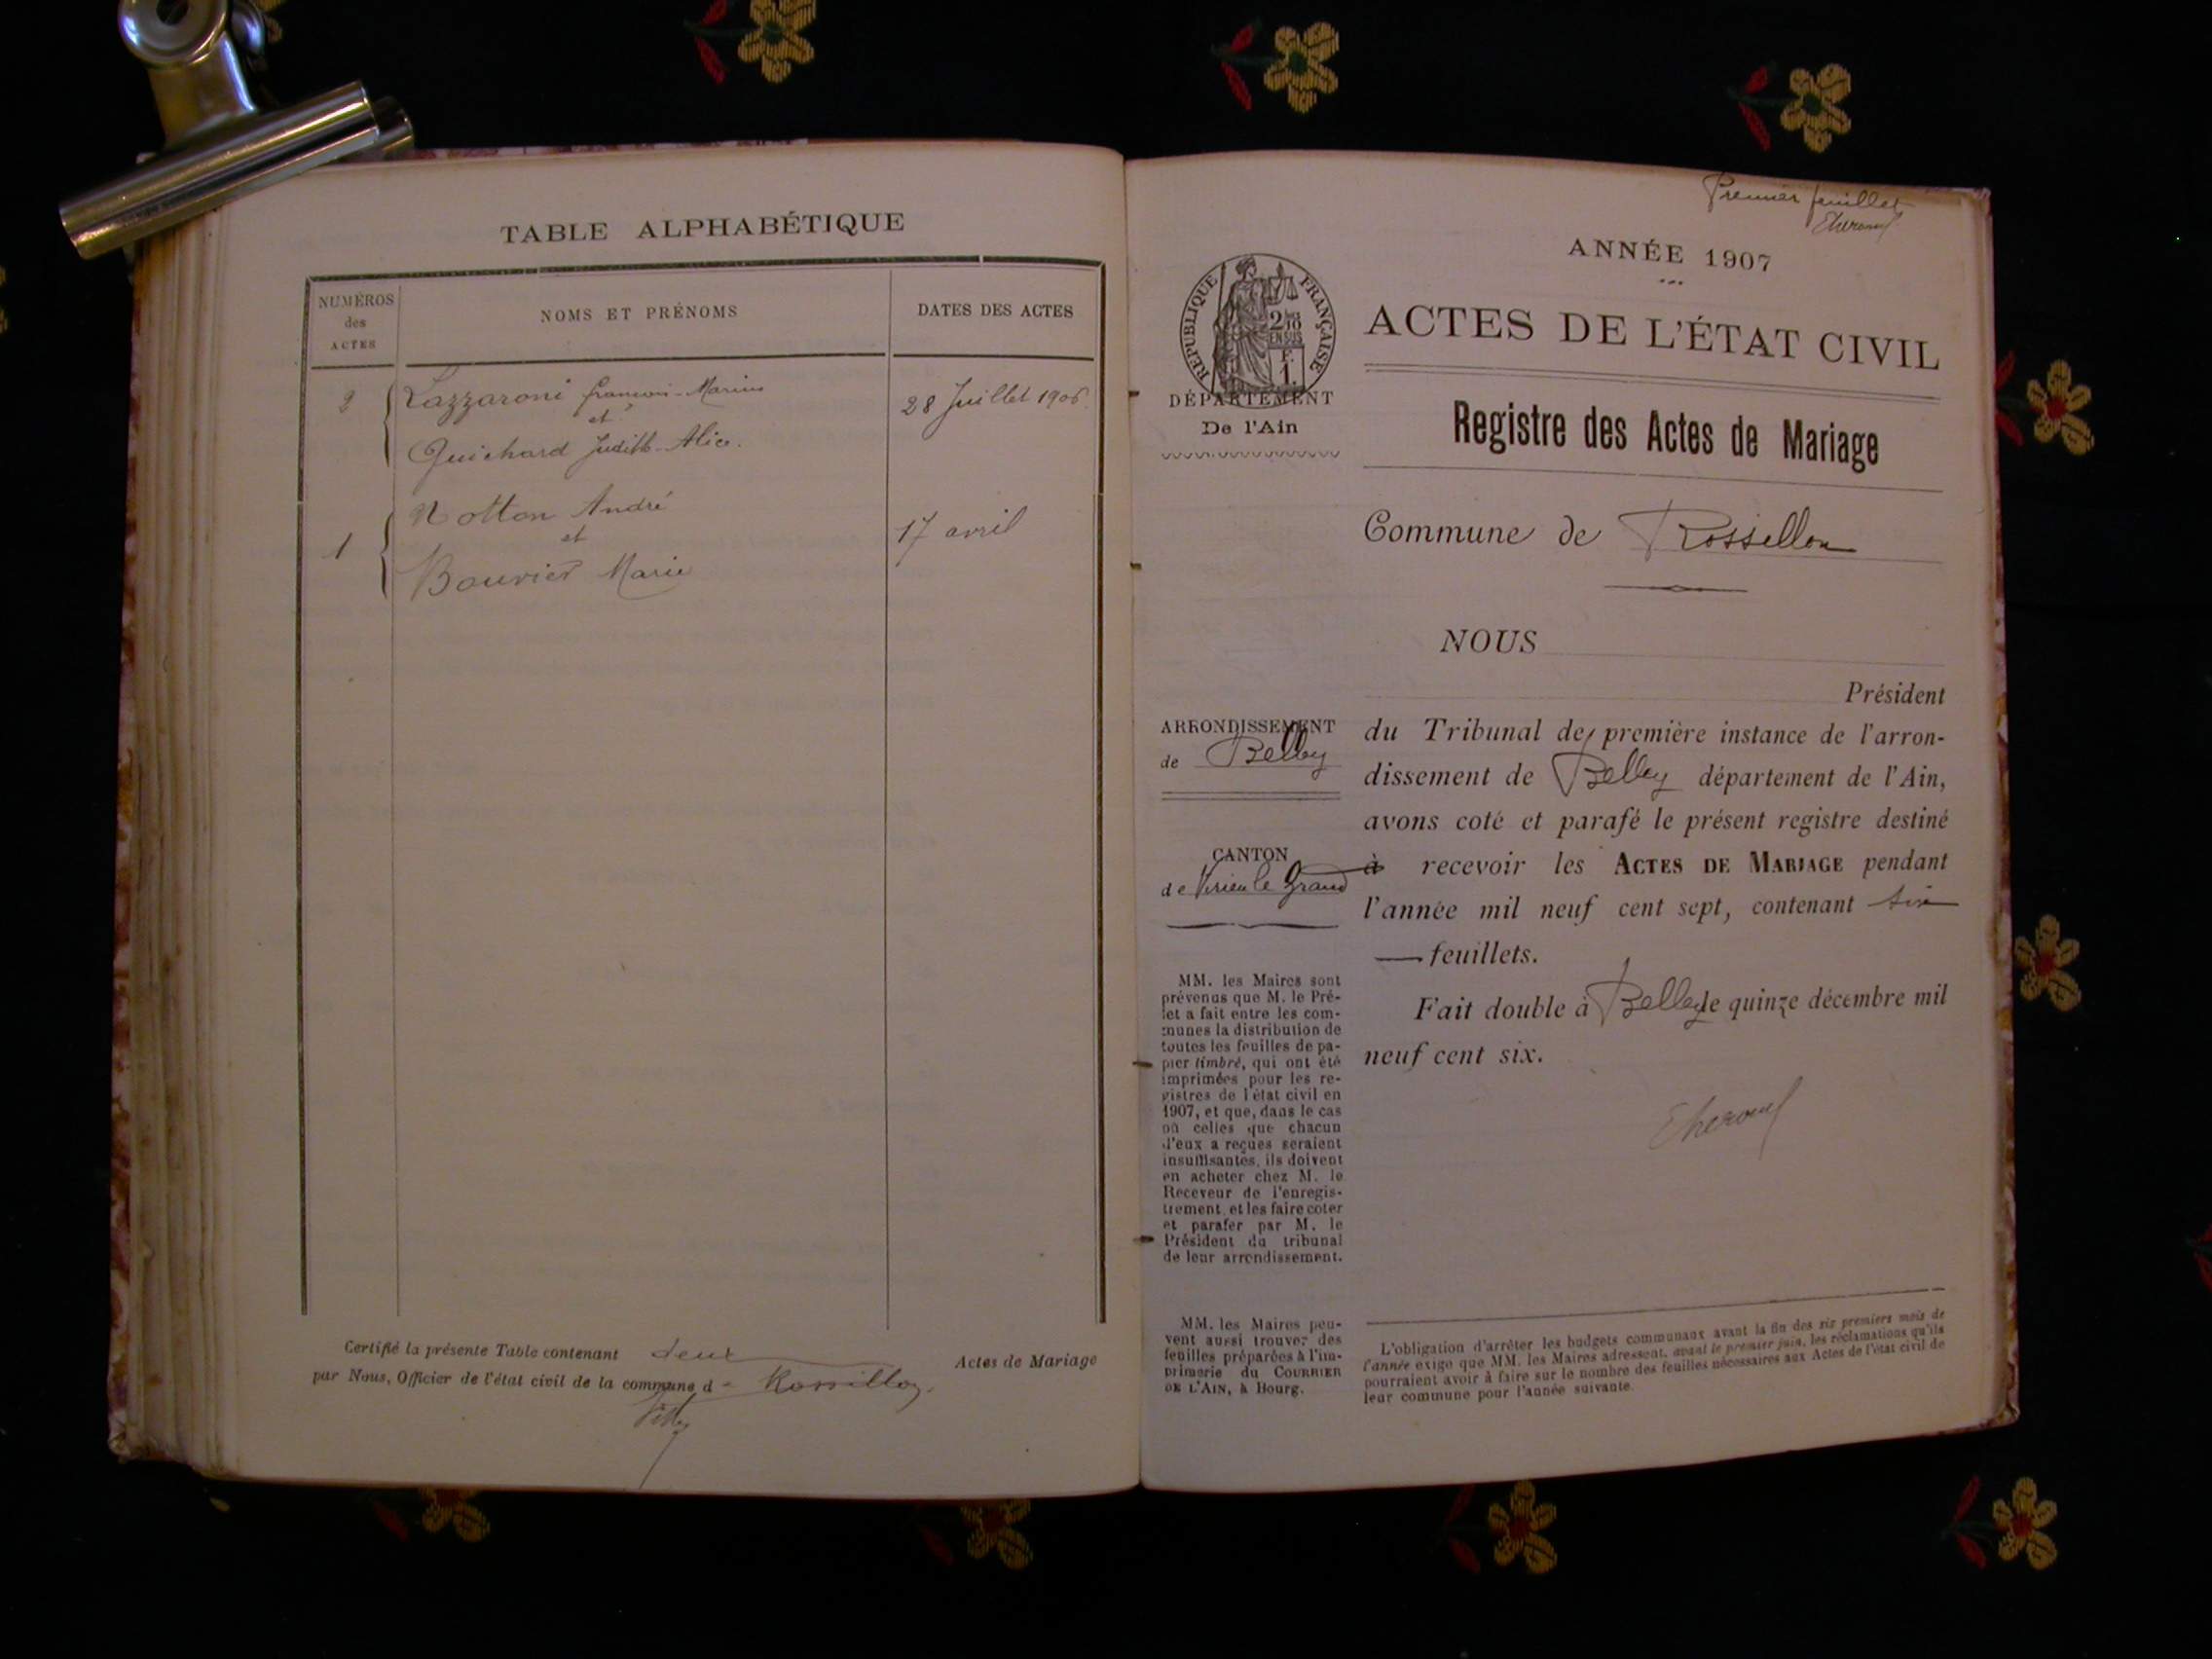 TABLE ALPHABÉTIQUE
NUMÉROS
des
ACTES
NOMS ET PRÉNOMS
DATES DES ACTES
2
Lazzaroni François-Marius
et
Guichard Judith-Alice.
28 Juillet 1906.
Notton André
1
et
Bouvier Marie
17 avril
Certifié la présente Table contenant deux Actes de Mariage
par Nous, Officier de l'état civil de la commune d Rossillon.
Premier feuillet
ANNÉE 1907
ACTES DE L'ÉTAT CIVIL
RÉPUBLIQUE FRANÇAISE
2/10
EN SUS
F.
1.
DÉPARTEMENT
De l'Ain
Registre des Actes de Mariage
Commune de Rossillon
NOUS
Président
du Tribunal de première instance de l'arron-
dissement de Belley département de l'Ain,
avons coté et parafé le présent registre destiné
à recevoir les ACTES DE MARIAGE pendant
l'année mil neuf cent sept, contenant six
feuillets.
Fait double à Belley le quinze décembre mil
neuf cent six.
ARRONDISSEMENT
de Belley
CANTON
de Virieu le Grand
MM. les Maires sont
prévenus que M. le Pré-
fet a fait entre les com-
munes la distribution de
toutes les feuilles de pa-
pier timbré, qui ont été
imprimées pour les re-
gistres de l'état civil en
1907, et que, dans le cas
où celles que chacun
d'eux a reçues seraient
insuffisantes, ils doivent
en acheter chez M. le
Receveur de l'enregis-
trement, et les faire coter
et parafer par M. le
Président du tribunal
de leur arrondissement.
MM. les Maires peu-
vent aussi trouver des
feuilles préparées à l'im-
primerie du COURRIER
DE L'AIN, à Bourg.
L'obligation d'arrêter les budgets communaux avant la fin des six premiers mois de
l'année exige que MM. les Maires adressent, avant le premier juin, les réclamations qu'ils
pourraient avoir à faire sur le nombre des feuilles nécessaires aux Actes de l'état civil de
leur commune pour l'année suivante.